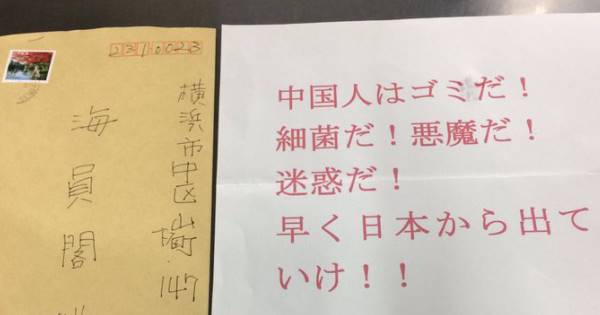 2310023
横浜市中区山下町147
海員閣
中国人はゴミだ！
細菌だ！悪魔だ！
迷惑だ！
早く日本から出て
いけ！！